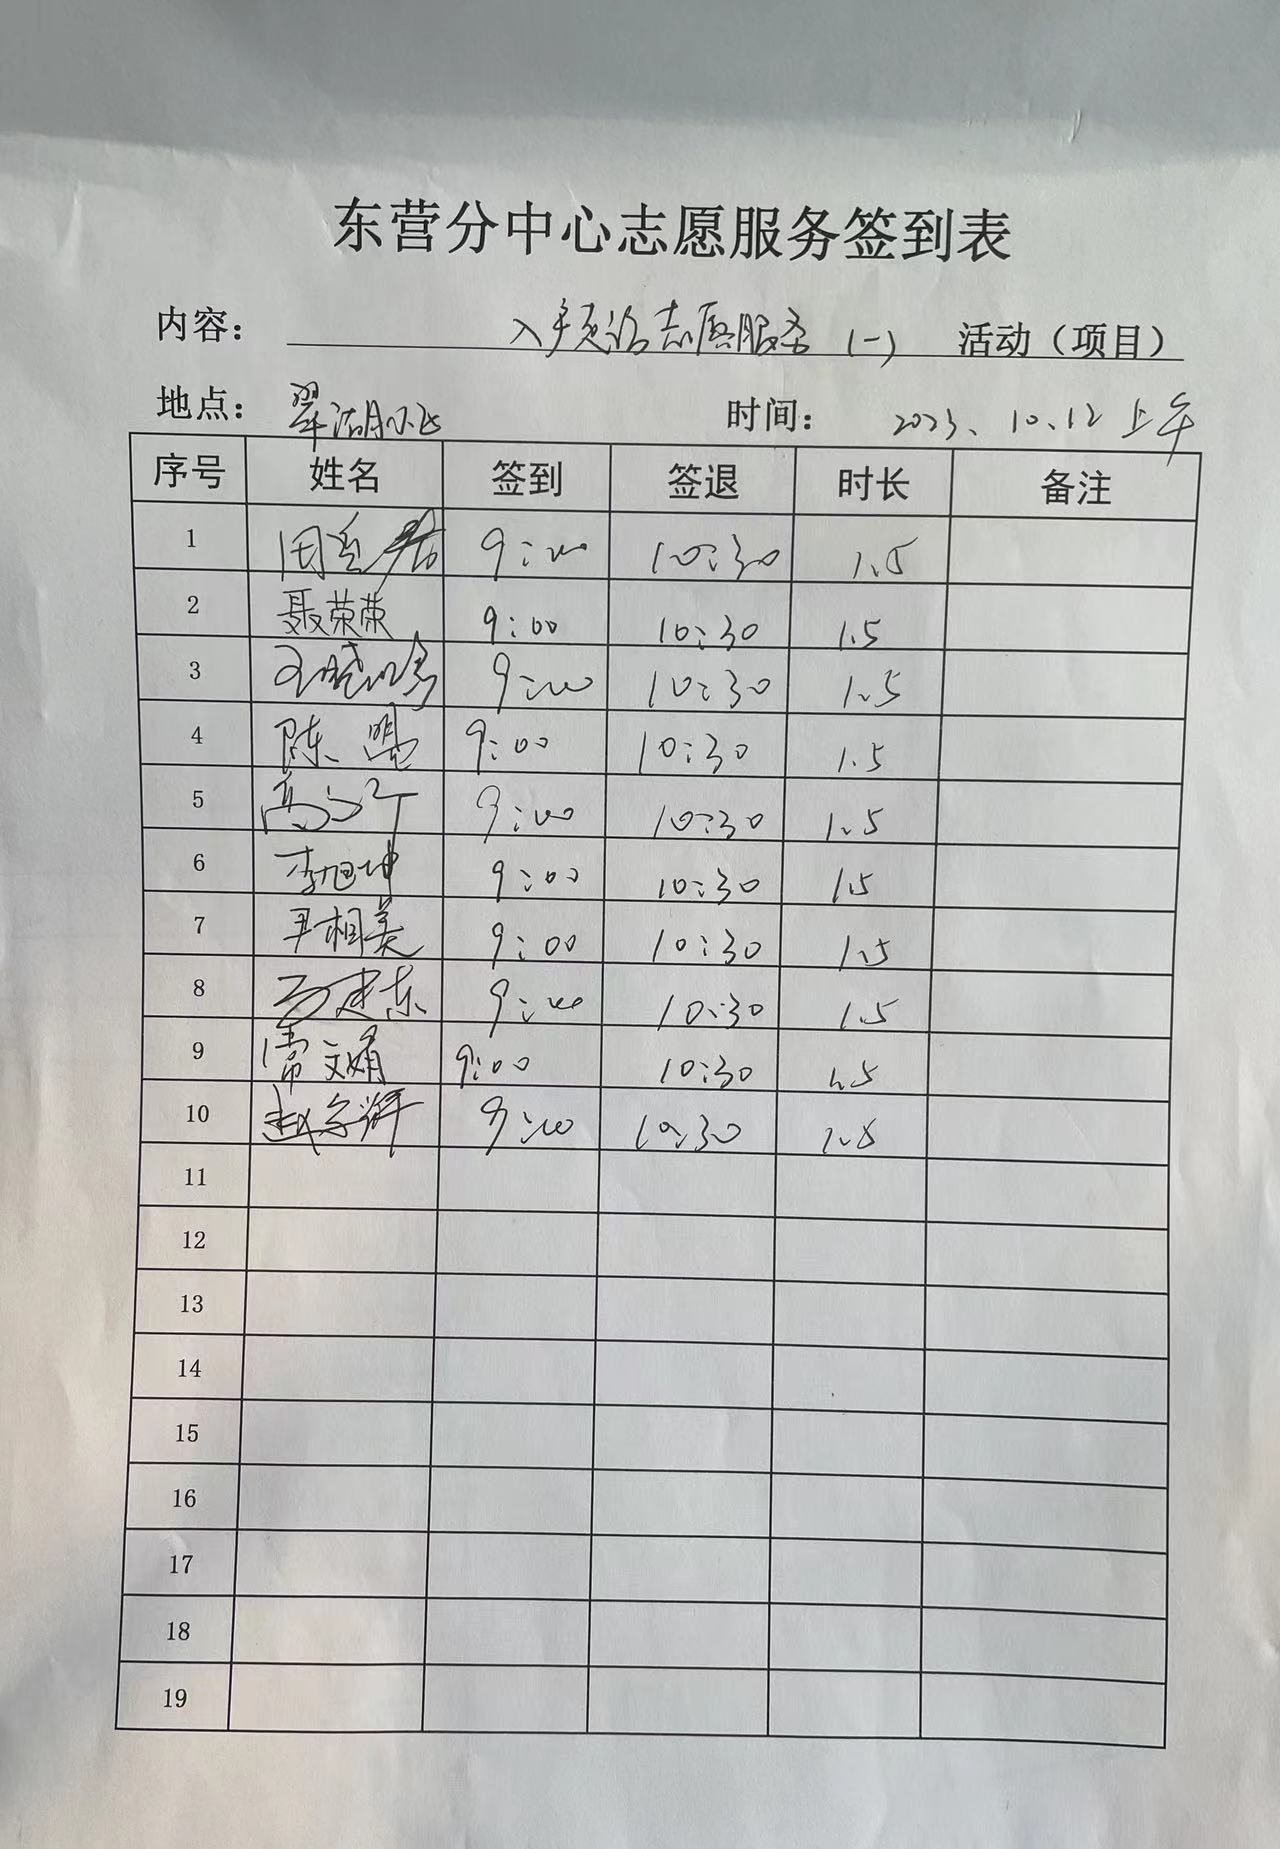 东营分中心志愿服务签到表
内容： 入户走访志愿服务（一） 活动（项目）
地点： 翠湖小区 时间： 2023、10、12 上午
序号 姓名 签到 签退 时长 备注
1 9:00 10:30 1.5
2 聂荣荣 9:00 10:30 1.5
3 9:00 10:30 1.5
4 陈 9:00 10:30 1.5
5 高 9:00 10:30 1.5
6 李旭坤 9:00 10:30 1.5
7 尹相美 9:00 10:30 1.5
8 马建东 9:00 10:30 1.5
9 常文娟 9:00 10:30 1.5
10 赵 9:00 10:30 1.5
11
12
13
14
15
16
17
18
19